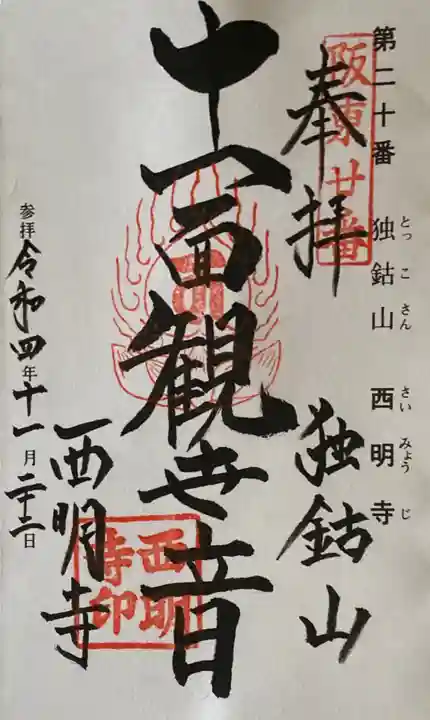 第二十番 独鈷山 西明寺
とっこさん さいみょうじ
阪東廿番
奉拝
独鈷山
十一面観世音
西明寺
西明寺印
参拝 令和四年十一月二十二日